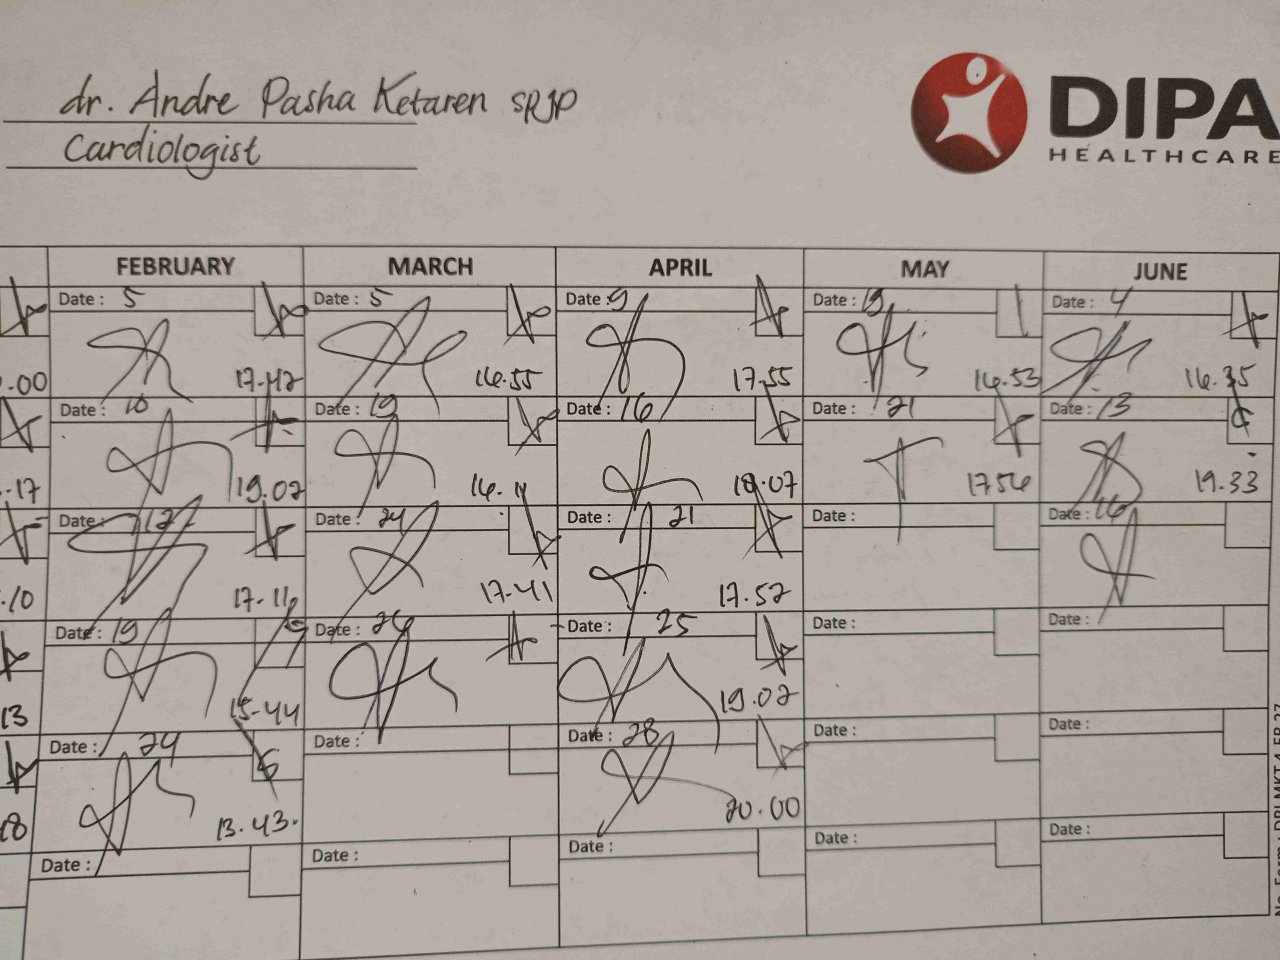 dr. Andre Pasha Ketaren SpJP
Cardiologist
DIPA
HEALTHCARE
FEBRUARY MARCH APRIL MAY JUNE
Date : 5 Date : 5 Date : 9 Date : Date : 4
.00 17.42 16.55 17.55 16.53 16.35
Date : 10 Date : 19 Date : 16 Date : 21 Date : 13
.17 19.02 16.11 18.07 17.56 19.33
Date : 12 Date : 24 Date : 21 Date : Date : 16
.10 17.11 17.41 17.52
Date : 19 Date : 26 Date : 25 Date : Date :
13 15.44 19.02
Date : 24 Date : Date : 28 Date : Date :
18 13.43. 20.00
Date : Date : Date : Date : Date :